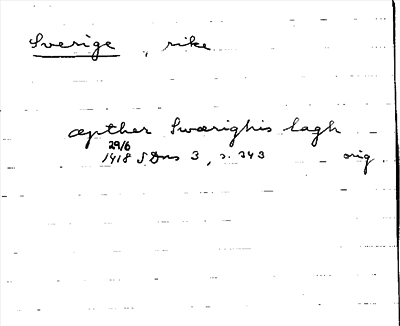 Sverige, rike
æpther Swærighis lagh
29/6
1418 SDns 3, s. 343 orig.